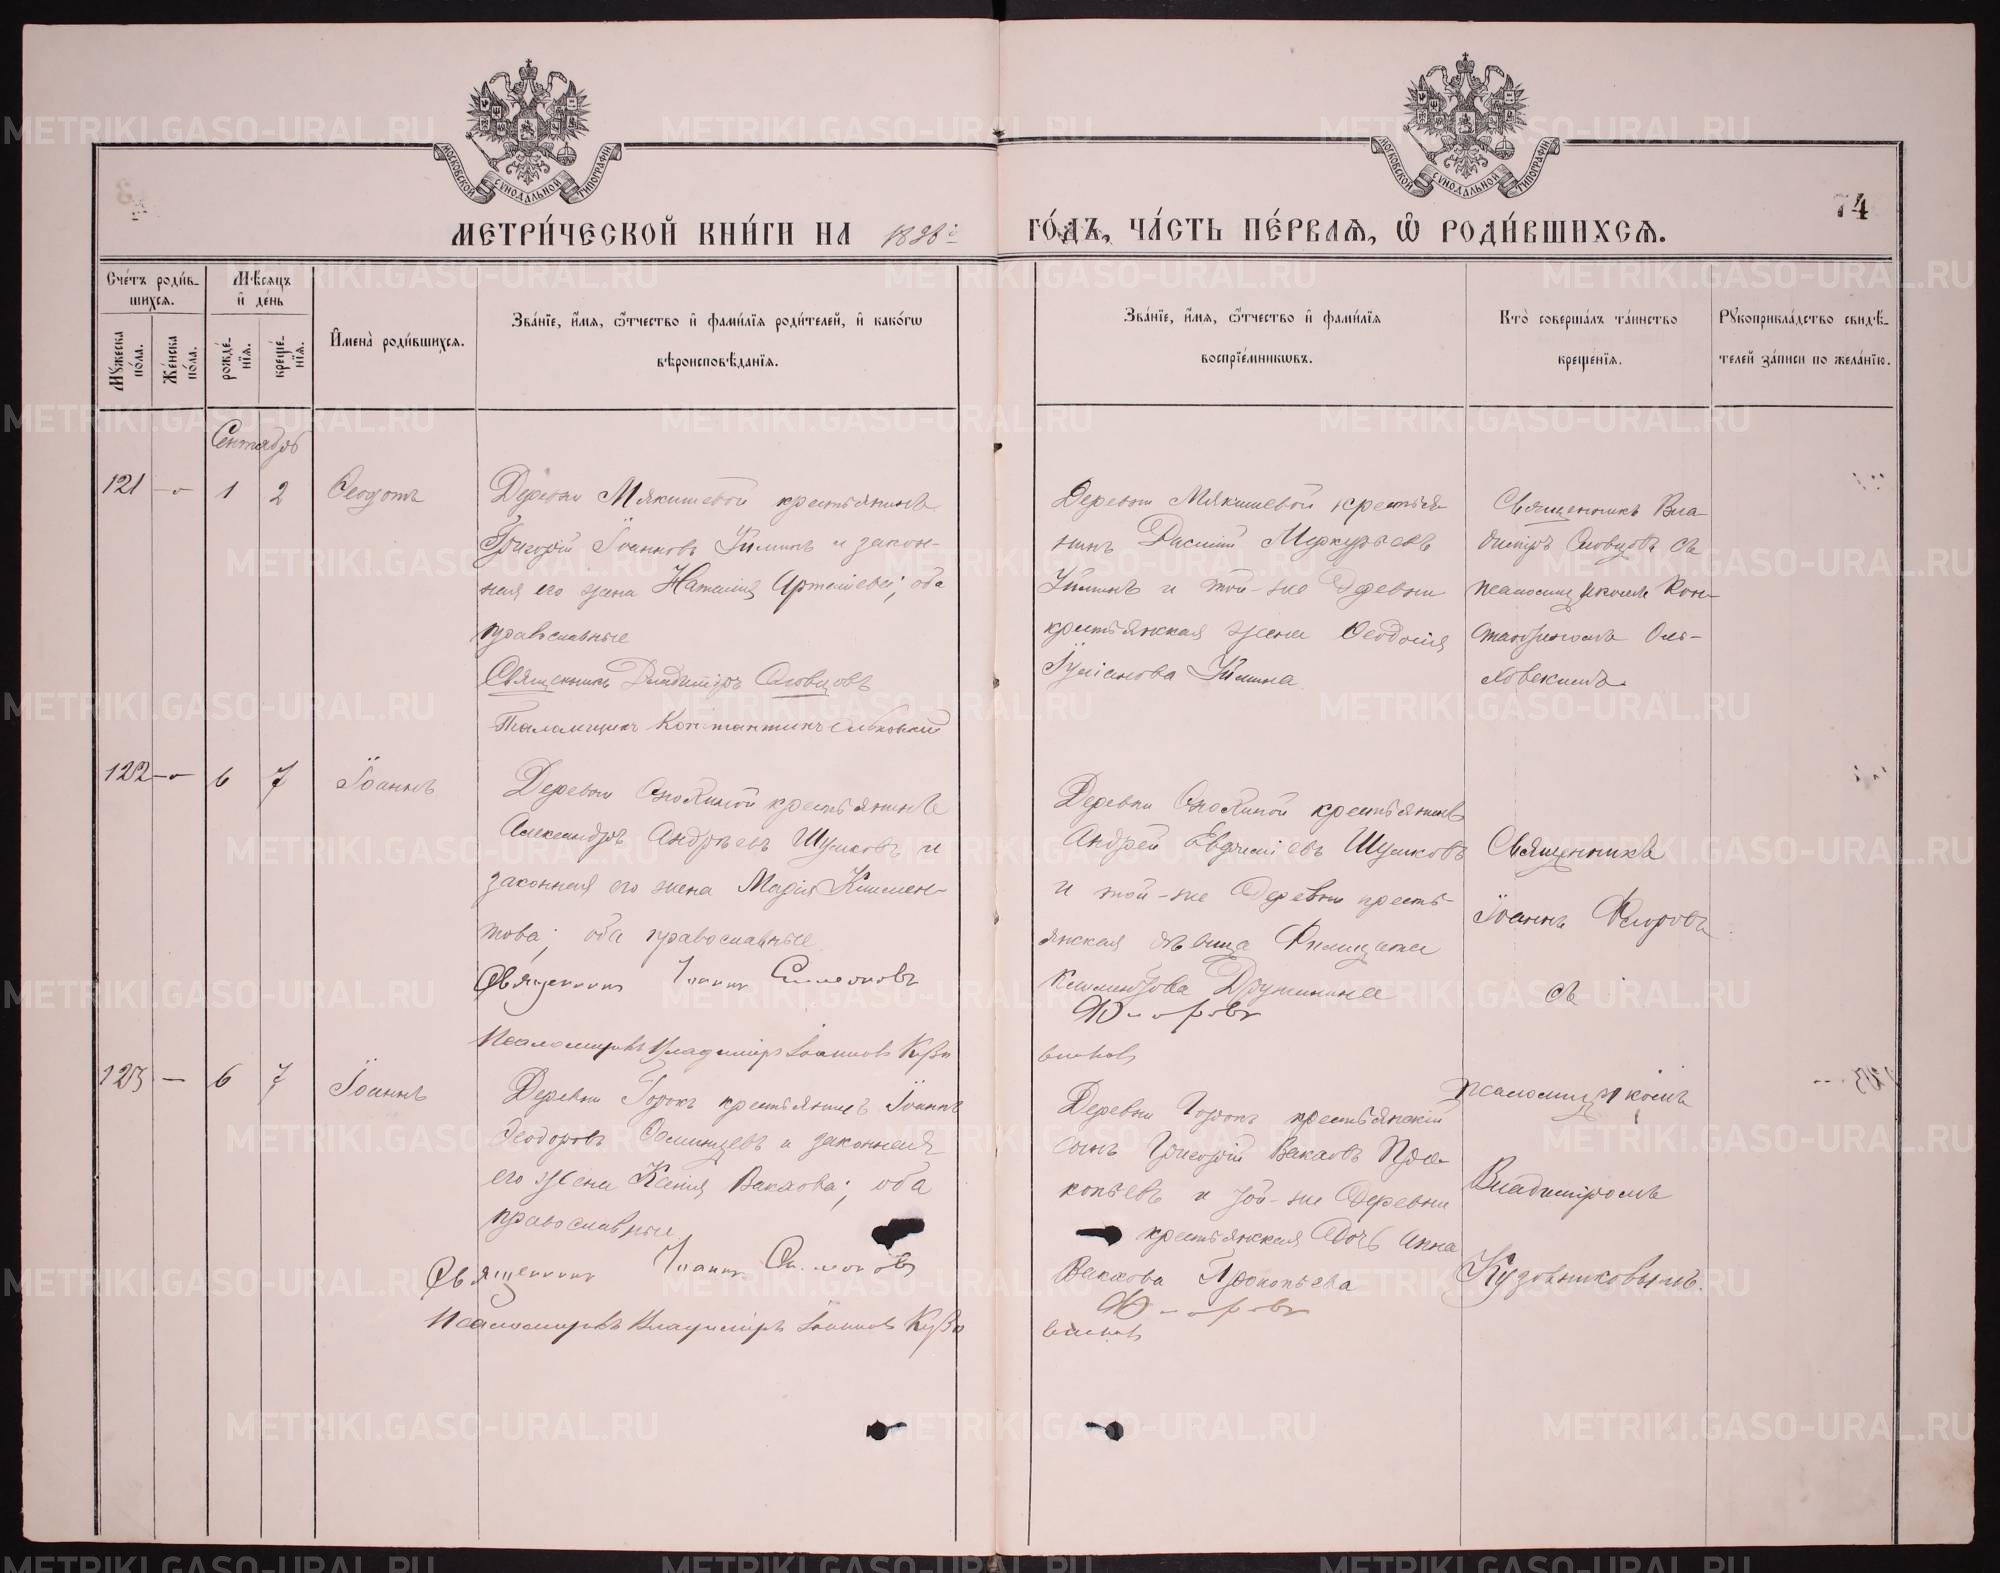 МОСКОВСКОЙ СѴНОДАЛЬНОЙ ТИПОГРАФІИ
МОСКОВСКОЙ СѴНОДАЛЬНОЙ ТИПОГРАФІИ
74
МЕТРИ́ЧЕСКОЙ КНИ́ГИ НА
ГО́ДЪ, ЧА́СТЬ ПЕ́РВАѦ, Ѽ РОДИ́ВШИХСѦ.
Сче́тъ роди́в-
шихсѧ.
Мꙋжеска по́ла.
Же́нска по́ла.
Мѣ́сѧцъ и҆ де́нь
рожде́нїѧ.
креще́нїѧ.
И҆мена̀ роди́вшихсѧ.
Зва́нїе, и҆́мѧ, ѻ҆́тчество и҆ фами́лїѧ роди́телей, и҆ како́гѡ
вѣроисповѣ́данїѧ.
Зва́нїе, и҆́мѧ, ѻ҆́тчество и҆ фами́лїѧ
воспрїе́мникѡвъ.
Кто̀ соверша́лъ та́инство
креще́нїѧ.
Рꙋкоприкла́дство свидѣ́-
телей за́писи по жела́нїю.
Сентябрь
121
1
2
Ѳеодотъ
Деревни Мякишевой крестьянинъ
Григорій Іоанновъ и закон-
ная его жена Наталія Артемьева; оба
православные
Священникъ Владиміръ Словцовъ
Псаломщикъ Константинъ Ольховскій
Деревни Мякишевой крестья-
нинъ Василій Меркурьевъ
и той-же деревни
крестьянская жена Ѳеодосія
Священникъ Вла-
диміръ Словцовъ съ
псаломщикомъ Кон-
стантиномъ Оль-
ховскимъ.
122
6
7
Іоаннъ
Деревни крестьянинъ
Александръ Андреевъ Шумковъ и
законная его жена Марія Климен-
това; оба православные
Священникъ Іоаннъ Симеоновъ
Псаломщикъ Владиміръ Іоанновъ Кузо
Деревни крестьянинъ
Андрей Евфиміевъ Шумковъ
и той-же деревни кресть-
янская дѣвица
Климентова Дружинина
Флоровъ
вниковъ
Священникъ
Іоаннъ Флоровъ
съ
псаломщикомъ
Владиміромъ
Кузовниковымъ.
123
6
7
Іоаннъ
Деревни Горокъ крестьянинъ Іоаннъ
Ѳеодоровъ и законная
его жена Ксенія Ваккова; оба
православные
Священникъ Іоаннъ Симеоновъ
Псаломщикъ Владиміръ Іоанновъ Кузо
Деревни Горокъ крестьянскій
сынъ Григорій Вакховъ Про-
копьевъ и той-же деревни
крестьянская дочь Анна
Вакхова Прокопьева
Флоровъ
вниковъ
METRIKI.GASO-URAL.RU